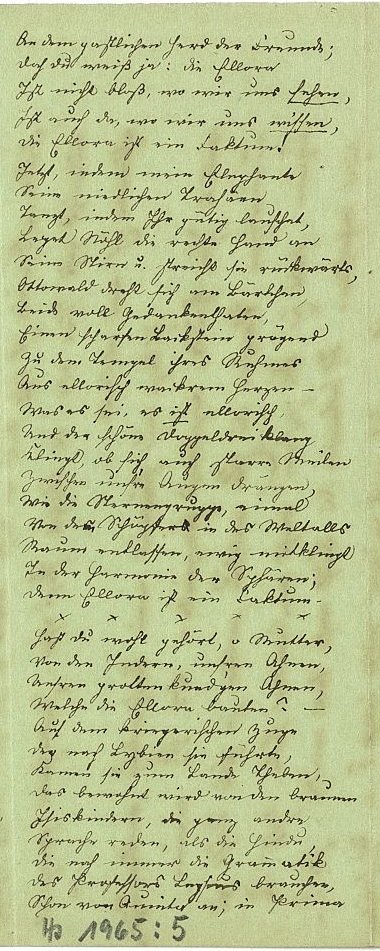 An dem gastlichen Herd der Freunde;
Doch Du weiß ja: die Ellora
Ist nicht bloß, wo wir uns sehen,
Ist auch da, wo wir uns wissen,
Die Ellora ist ein Faktum!
Jetzt, indem mein Elephante
Seine niedlichen Trochäen
Tanzt, indem Ihr gütig lauschet,
Leget Stöhl die rechte Hand an
Seine Stirn u. streicht sie rückwärts,
Ottowald dreht sich am Bärtchen,
Beide voll Gedankenthaten,
Einen scharfen Backstein prägend
Zu dem Tempel ihres Ruhmes
Aus ellorisch wackrem Herzen –
Was es sei, es ist ellorisch,
Und der schöne Doppeldreiklang
Klingt, ob sich auch starre Meilen
Zwischen unsre Augen drängen,
Wie die Sternengruppe, einmal
Von des Schöpfers in des Weltalls
Raum entlassen, ewig mitklingt
In der Harmonie der Sphären;
Denn Ellora ist ein Faktum.
x x x x x
Hast du wohl gehört, o Mutter,
Von den Indern, unsren Ahnen,
Unsren grottenkundgen Ahnen,
Welche die Ellora bauten? –
Auf dem kriegerischen Zuge
Der nach Lybien sie führte,
Kamen sie zum Lande Theben,
Das bewohnt wird von den braunen
Isiskindern, die ganz andre
Sprache reden, als die Hindu,
Die noch immer die Gramatik
Des Professors Lepsius brauchen,
Schon von Quinta an; in Prima
Hs 1965:5